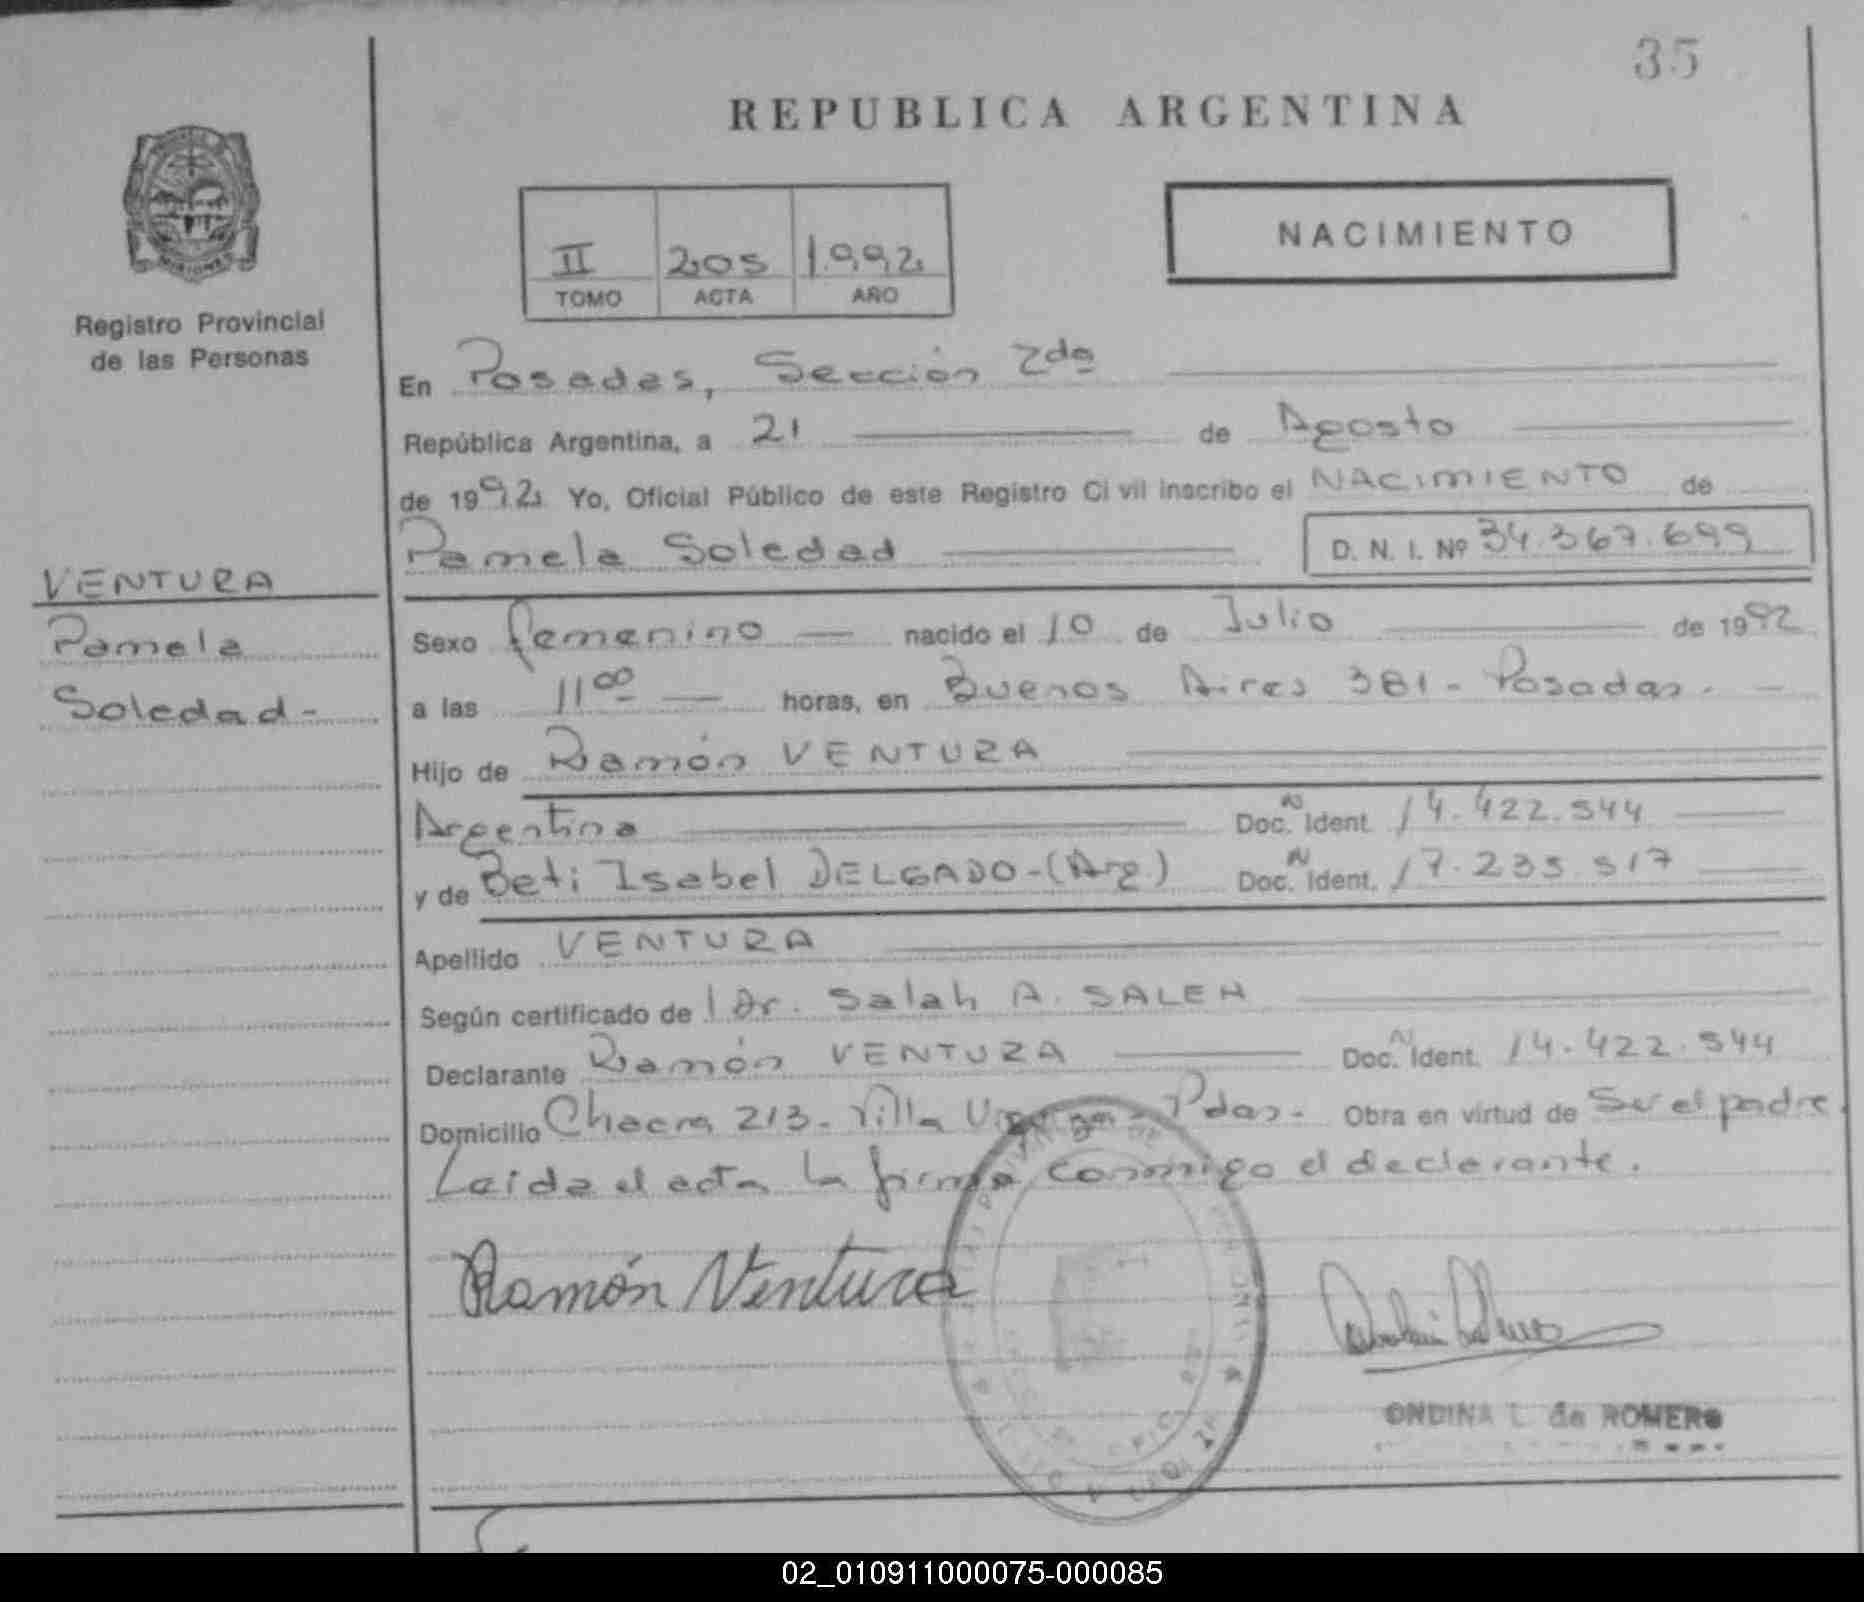 35
REPUBLICA ARGENTINA
MISIONES
Registro Provincial
de las Personas
II 205 1992
TOMO ACTA AÑO
NACIMIENTO
En Posadas, Sección 2da
República Argentina, a 21 de Agosto
de 1992 Yo, Oficial Público de este Registro Civil inscribo el NACIMIENTO de
Pamela Soledad D. N. I. Nº 34.367.699
VENTURA
Pamela
Soledad-
Sexo femenino nacido el 10 de Julio de 1992
a las 11 00 horas, en Buenos Aires 381- Posadas.-
Hijo de Ramón VENTURA
Argentina Doc. N Ident. 14.422.544
y de Beti Isabel DELGADO-(Arg) Doc. N Ident. 17.235.517
Apellido VENTURA
Según certificado de Dr. Salah A. SALEH
Declarante Ramón VENTURA Doc. N Ident. 14.422.544
Domicilio Chacra 213- Villa Pdas- Obra en virtud de Ser el padre.
Leida el acta la firma conmigo el declarante.
Ramón Ventura
ONDINA L. de ROMERO
02_010911000075-000085